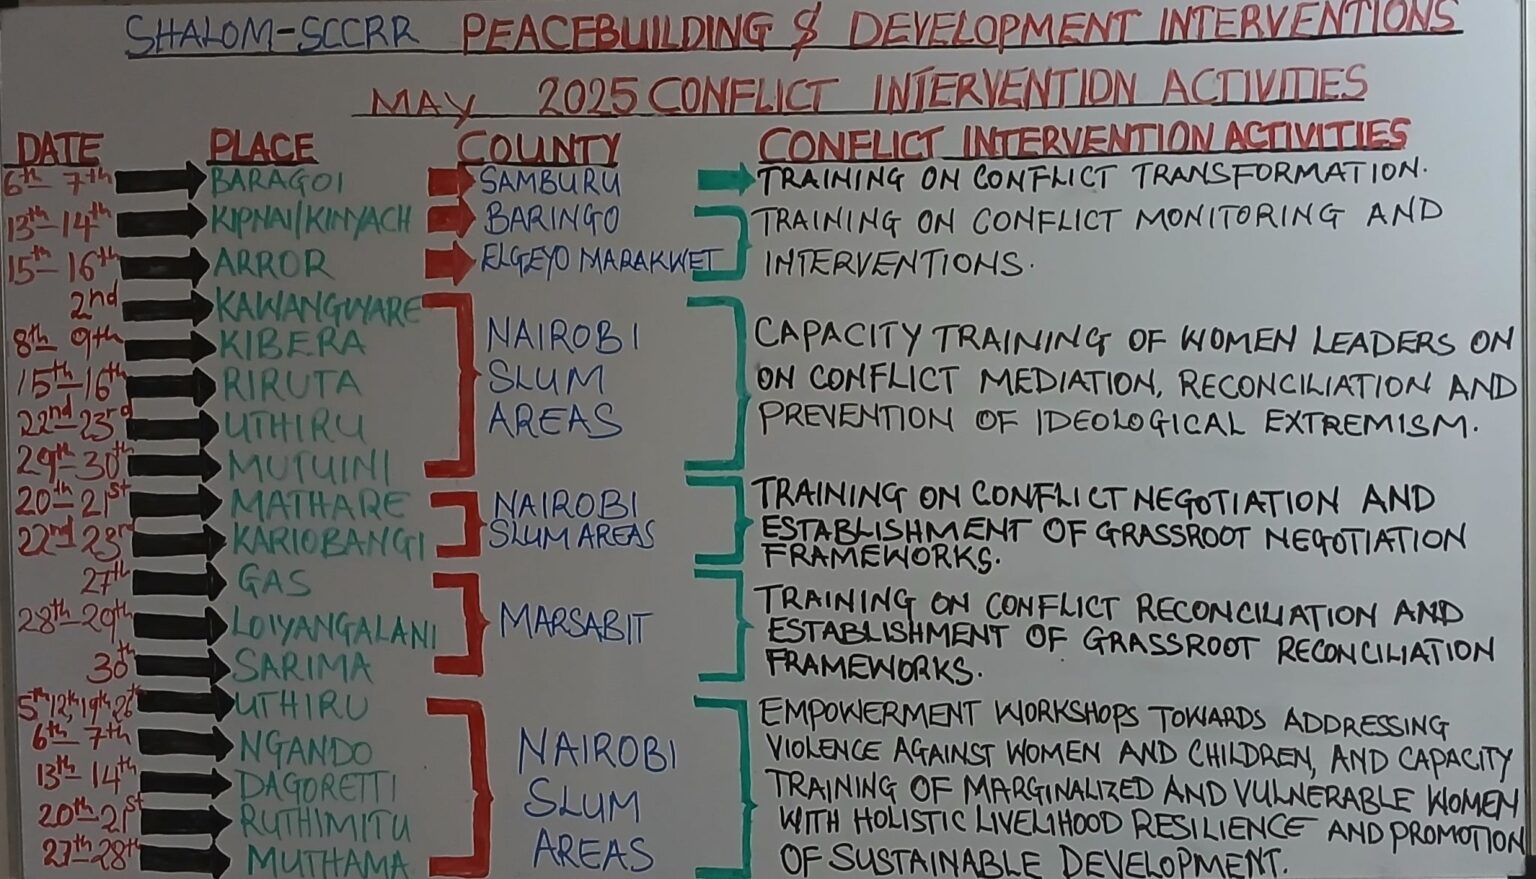 SHALOM-SCCRR PEACEBUILDING & DEVELOPMENT INTERVENTIONS
MAY 2025 CONFLICT INTERVENTION ACTIVITIES
DATE PLACE COUNTY CONFLICT INTERVENTION ACTIVITIES
6th- 7th BARAGOI SAMBURU TRAINING ON CONFLICT TRANSFORMATION.
13th-14th KIPNAI/KINYACH BARINGO TRAINING ON CONFLICT MONITORING AND
15th-16th ARROR ELGEYO MARAKWET INTERVENTIONS.
2nd KAWANGWARE
8th- 9th KIBERA NAIROBI CAPACITY TRAINING OF WOMEN LEADERS ON
15th-16th RIRUTA SLUM ON CONFLICT MEDIATION, RECONCILIATION AND
22nd-23rd UTHIRU AREAS PREVENTION OF IDEOLOGICAL EXTREMISM.
29th-30th MUTUINI
20th-21st MATHARE NAIROBI TRAINING ON CONFLICT NEGOTIATION AND
22nd 23rd KARIOBANGI SLUM AREAS ESTABLISHMENT OF GRASSROOT NEGOTIATION
FRAMEWORKS.
27th GAS
28th-29th LOIYANGALANI MARSABIT TRAINING ON CONFLICT RECONCILIATION AND
ESTABLISHMENT OF GRASSROOT RECONCILIATION
30th SARIMA FRAMEWORKS.
5th,12th,19th,26th UTHIRU EMPOWERMENT WORKSHOPS TOWARDS ADDRESSING
6th- 7th NGANDO NAIROBI VIOLENCE AGAINST WOMEN AND CHILDREN, AND CAPACITY
13th-14th DAGORETTI SLUM TRAINING OF MARGINALIZED AND VULNERABLE WOMEN
20th-21st RUTHIMITU AREAS WITH HOLISTIC LIVELIHOOD RESILIENCE AND PROMOTION
27th-28th MUTHAMA OF SUSTAINABLE DEVELOPMENT.